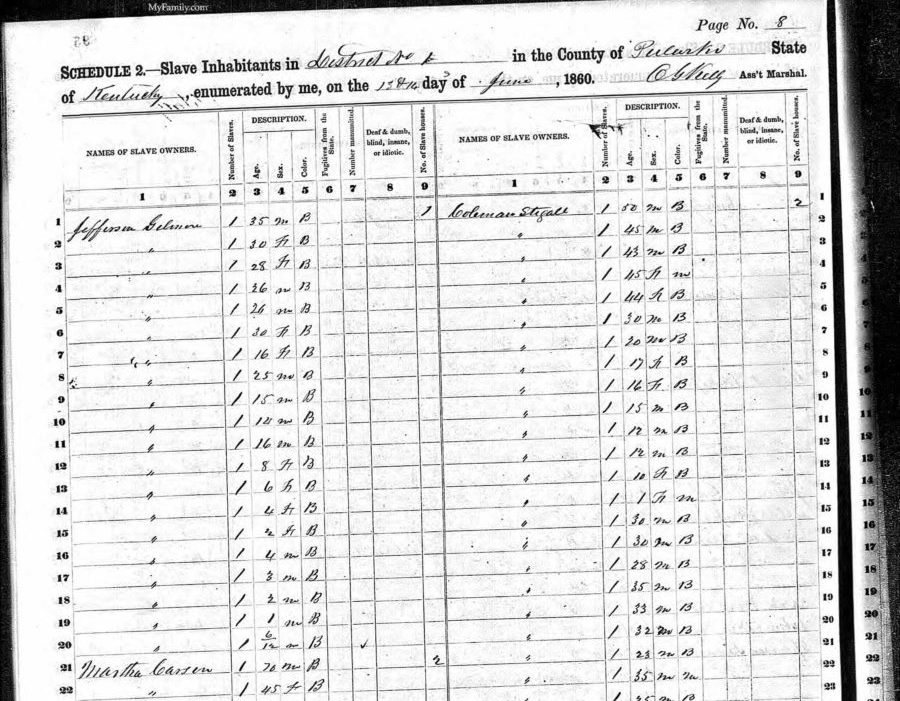 MyFamily.com
Page No. 8
SCHEDULE 2.—Slave Inhabitants in District No in the County of Pulaski State
of Kentucky, enumerated by me, on the 13 & 14 day of June, 1860. Ass't Marshal.
NAMES OF SLAVE OWNERS. Number of Slaves. DESCRIPTION. Age. Sex. Color. Fugitives from the State. Number manumitted. Deaf & dumb, blind, insane, or idiotic. No. of Slave houses. NAMES OF SLAVE OWNERS. Number of Slaves. DESCRIPTION. Age. Sex. Color. Fugitives from the State. Number manumitted. Deaf & dumb, blind, insane, or idiotic. No. of Slave houses.
1 2 3 4 5 6 7 8 9 1 2 3 4 5 6 7 8 9
1 Jefferson Gilmore 1 35 m B 1 Coleman Stegall 1 50 m B 2 1
2 " 1 30 F B " 1 45 m B 2
3 " 1 28 F B " 1 43 m B 3
4 " 1 26 m B " 1 45 F m 4
5 " 1 26 m B " 1 44 F B 5
6 " 1 30 F B " 1 30 m B 6
7 " 1 16 F B " 1 20 m B 7
8 " 1 25 m B " 1 17 F B 8
9 " 1 15 m B " 1 16 F B 9
10 " 1 14 m B " 1 15 m B 10
11 " 1 16 m B " 1 12 m B 11
12 " 1 8 F B " 1 12 m B 12
13 " 1 6 F B " 1 10 F B 13
14 " 1 4 F B " 1 1 F m 14
15 " 1 2 F B " 1 30 m B 15
16 " 1 4 m B " 1 30 m B 16
17 " 1 3 m B " 1 28 m B 17
18 " 1 2 m B " 1 35 m B 18
19 " 1 1 m B " 1 33 m B 19
20 " 1 6/12 m B " 1 32 m B 20
21 Martha Carson 1 70 m B 2 " 1 23 m B 21
22 " 1 45 F B " 1 35 m m 22
1 25 m B 23